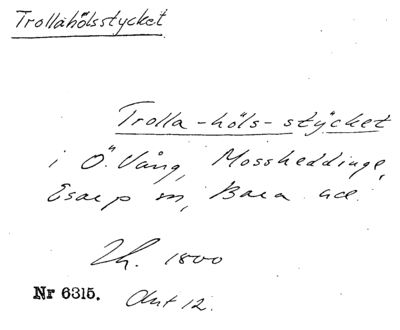 Trollahölsstycket
Trolla-höls-stycket
i Ö. Vång, Mossheddinge,
Esarp sn, Bara hd.
Lh. 1800
Nr 6315. Akt 12.